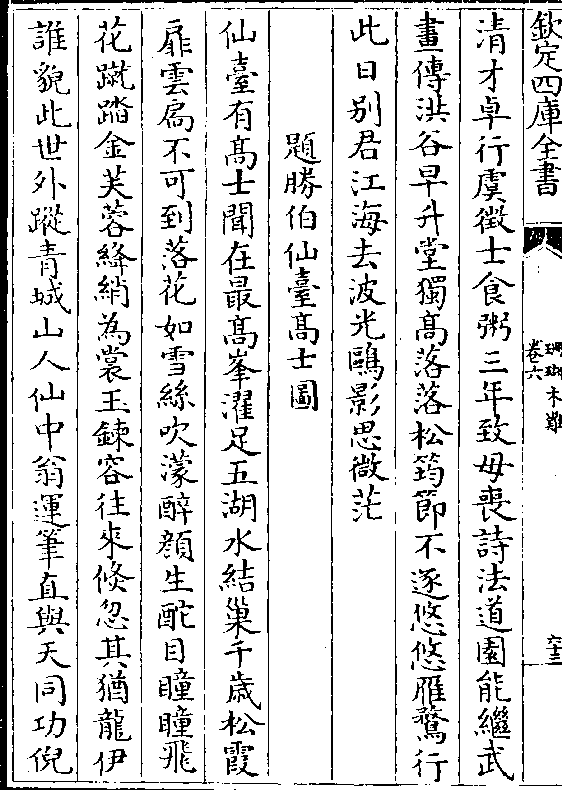 欽定四庫全書
珊瑚木難
卷六
六十三
清才卓行虞徵士食粥三年致母喪詩法道園能繼武
畫傳洪谷早升堂獨髙落落松筠節不逐悠悠雁鶩行
此日别君江海去波光鷗影思微茫
題勝伯仙臺髙士圖
仙臺有髙士聞在最髙峯濯足五湖水結巢千歳松霞
扉雲扄不可到落花如雪絲吹濛醉顔生酡目瞳瞳飛
花蹴踏金芙蓉絳綃為裳玉鍊容往來倐忽其猶龍伊
誰貌此世外蹤青城山人仙中翁運筆直與天同功倪